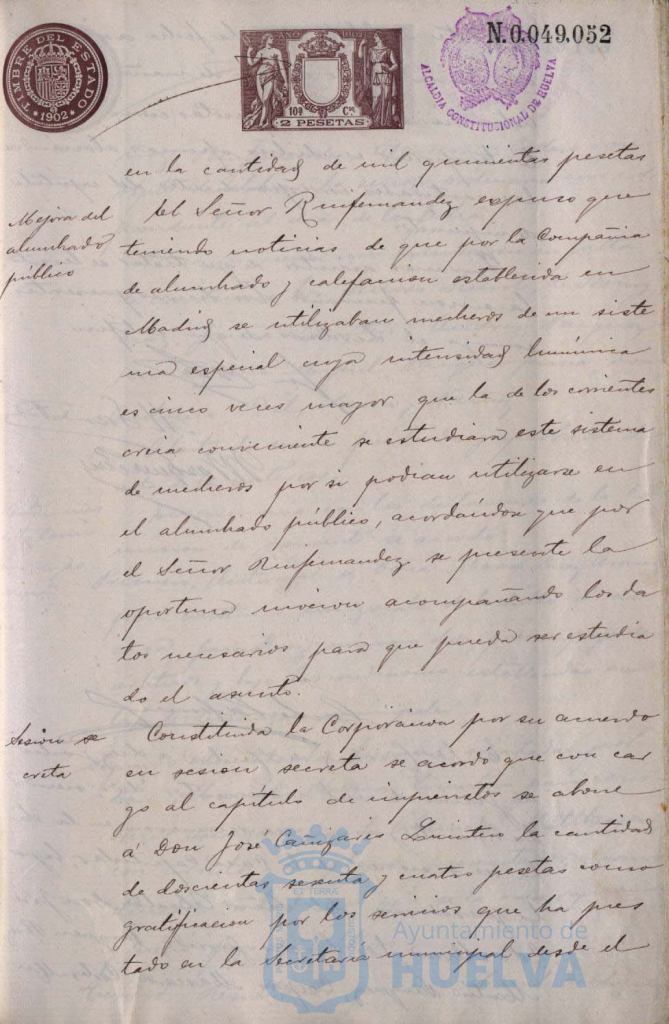 TIMBRE DEL ESTADO
*1902*
AÑO 1902
10ª Cse
2 PESETAS
N.0.049.052
ALCALDIA CONSTITUCIONAL DE HUELVA
en la cantidad de mil quinientas pesetas
Mejora del
alumbrado
público
El Señor Ruifernandez expuso que
teniendo noticias de que por la Compañia
de alumbrado y calefaccion establecida en
Madrid se utilizaban mecheros de un siste
ma especial cuya intensidad lumínica
es cinco veces mayor que la de los corrientes
creia conveniente se estudiara este sistema
de mecheros por si podian utilizarse en
el alumbrado público, acordándose que por
el Señor Ruifernandez se presente la
oportuna mocion acompañando los da
tos necesarios para que pueda ser estudia
do el asunto.
Sesion se
creta
Constituida la Corporacion por su acuerdo
en sesion secreta se acordó que con car
go al capítulo de imprevistos se abone
á Don José Cañizares Quintero la cantidad
de doscientas sesenta y cuatro pesetas como
gratificacion por los servicios que ha pres
tado en la Secretaria municipal desde el
Ayuntamiento de
HUELVA